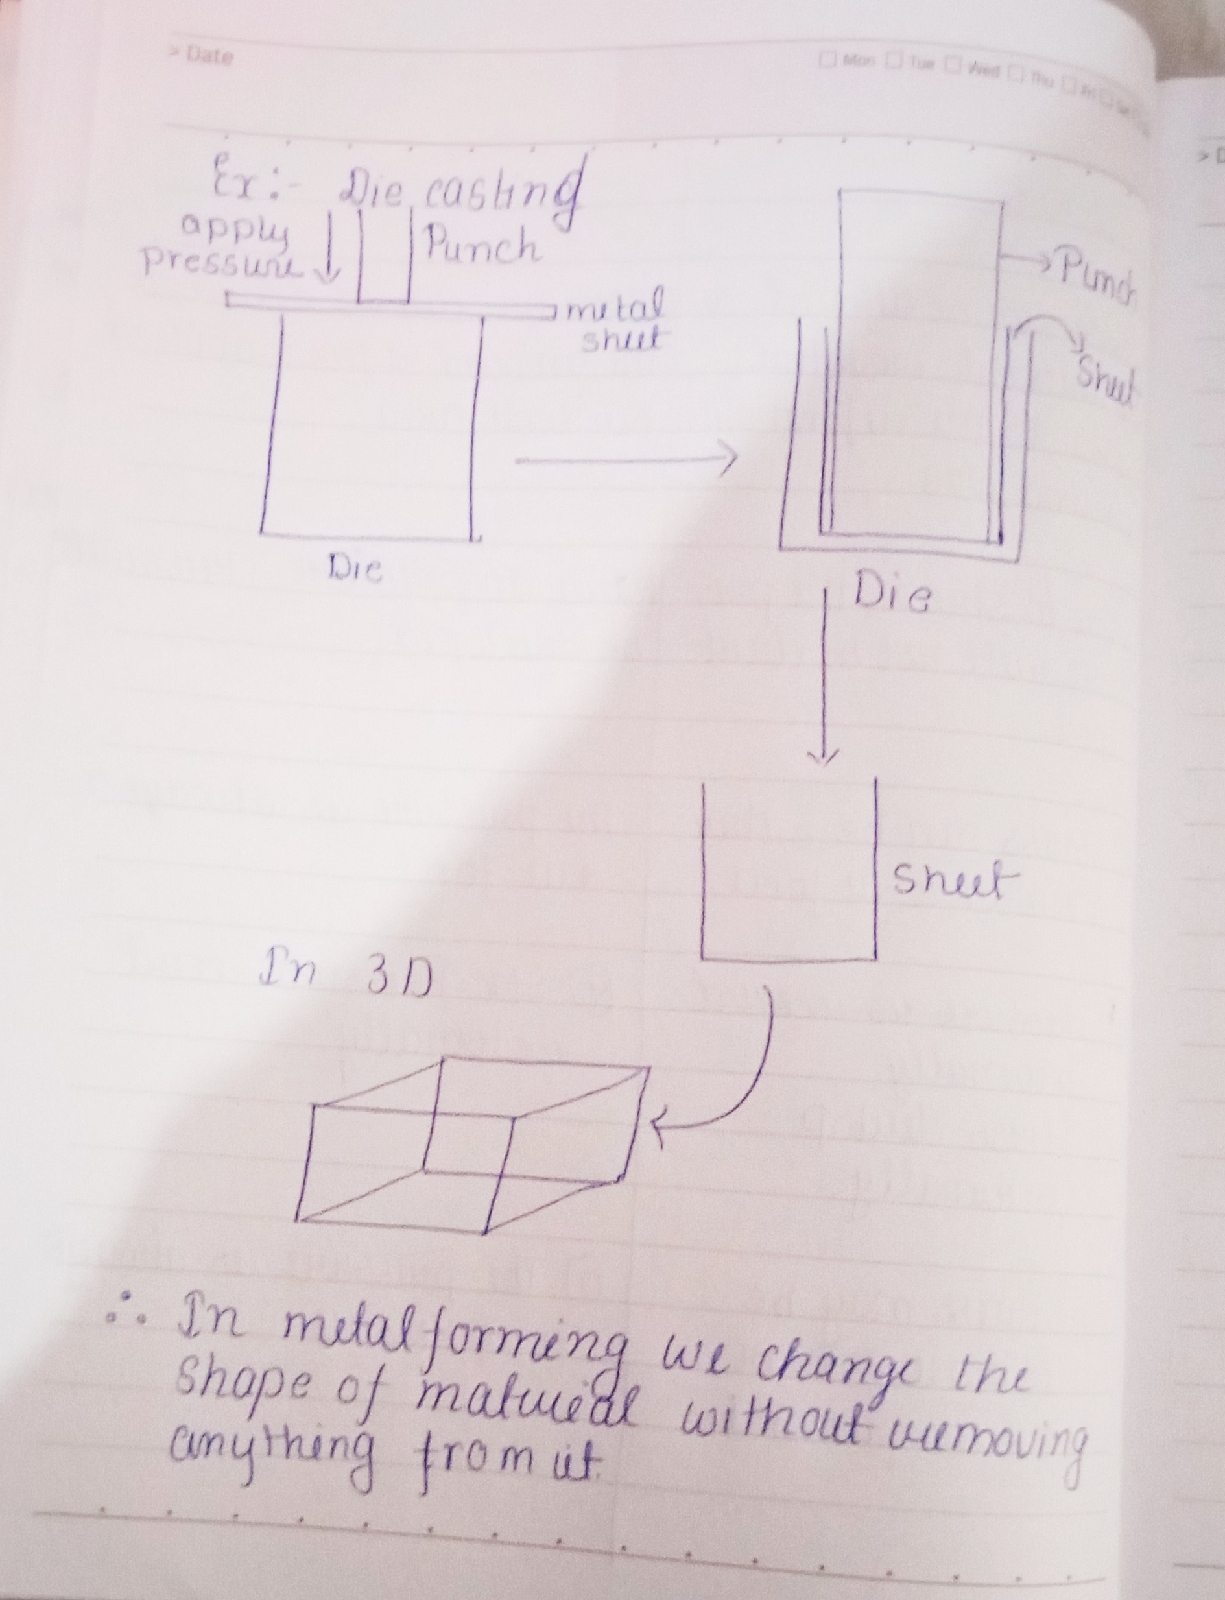 > Date
Mon Tue Wed Thu Fri
Ex:- Die casting
apply
pressure
Punch
metal
sheet
Die
Punch
Sheet
Die
sheet
In 3D
∴ In metal forming we change the
shape of material without removing
anything from it.